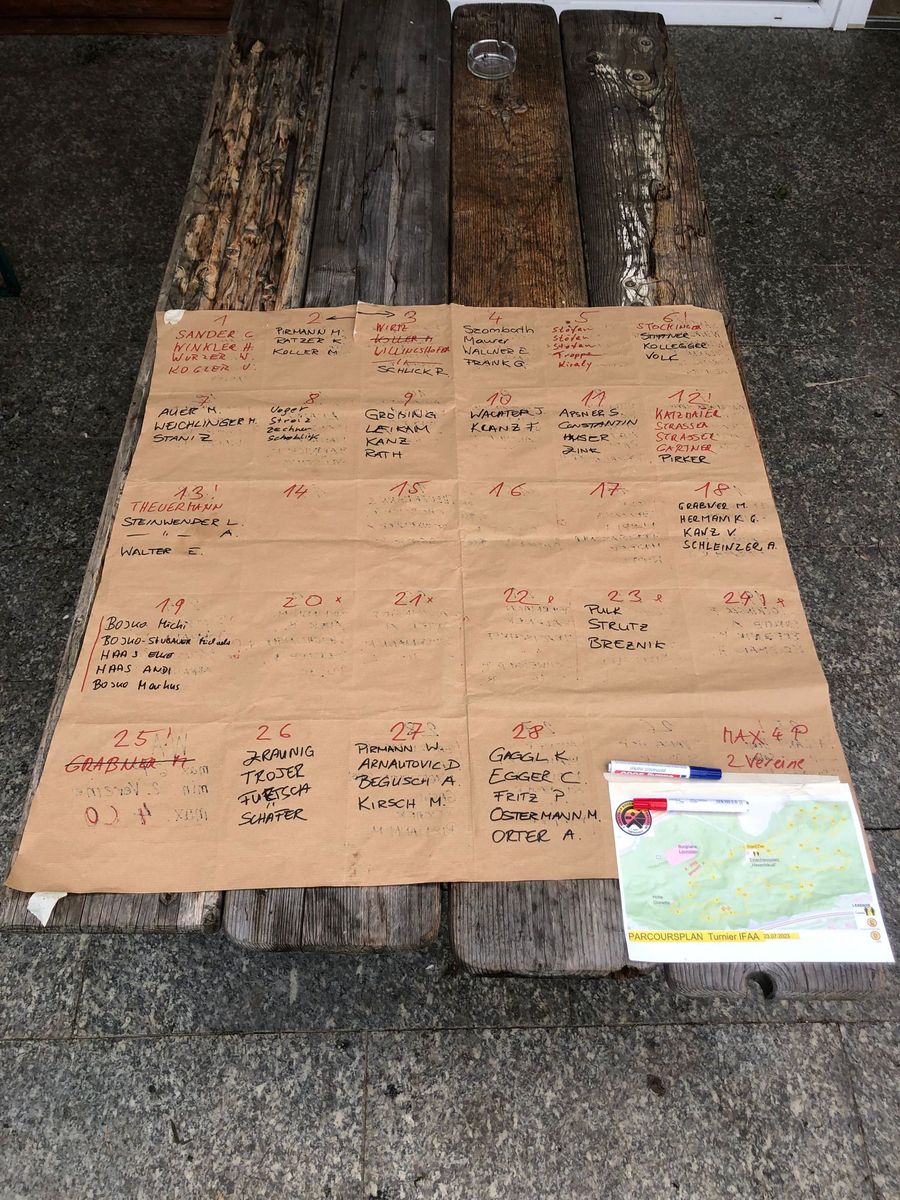 1
SANDER C
WINKLER H.
WURZER W.
KOGLER V.
2
PIRMANN M.
RATZER K.
KOLLER M.
3
WIRTZ
KOLLER M
WILLINGSHOFER
SCHLICK R.
4
Szombath
Maurer
WALLNER E.
FRANK G.
5
Stefan
Stefan
Stefan
Troppe
Kiraly
6!
STOCKINGER
STATTNER
KOLLEGGER
VOLK
7
AUER M.
WEICHLINGER M.
STANI Z
8
Voger
Streiz
Zechner
9
GRÖNING
LEIKAM
KANZ
RATH
10
WACHTER J.
KRANZ F.
11
APSNER S.
CONSTANTIN
HUSER
ZINK
12!
KATZMAIER
STRASSER
STRASSER
GARTNER
PIRKER
13!
THEUERMANN
STEINWENDER L.
— " — A.
WALTER E.
14
15
16
17
18
GRABNER M.
HERMANIK G.
KANZ V.
SCHLEINZER A.
19
BOJKO Michi
BOJKO-STUBAUER
HAAS ELKE
HAAS ANDI
BOJKO Markus
20 x
21 x
22
23
PULK
STRUTZ
BREZNIK
24!
25!
GRABNER M
26
ZRAUNIG
TROJER
FURTSCHA
SCHÄFER
27
PIRMANN W.
ARNAUTOVIC D
BEGUSCH A.
KIRSCH M.
28
GAGGL K.
EGGER C.
FRITZ P.
OSTERMANN M.
ORTER A.
MAX 4 P
2 Vereine
PARCOURSPLAN Turnier IFAA 23.07.2023